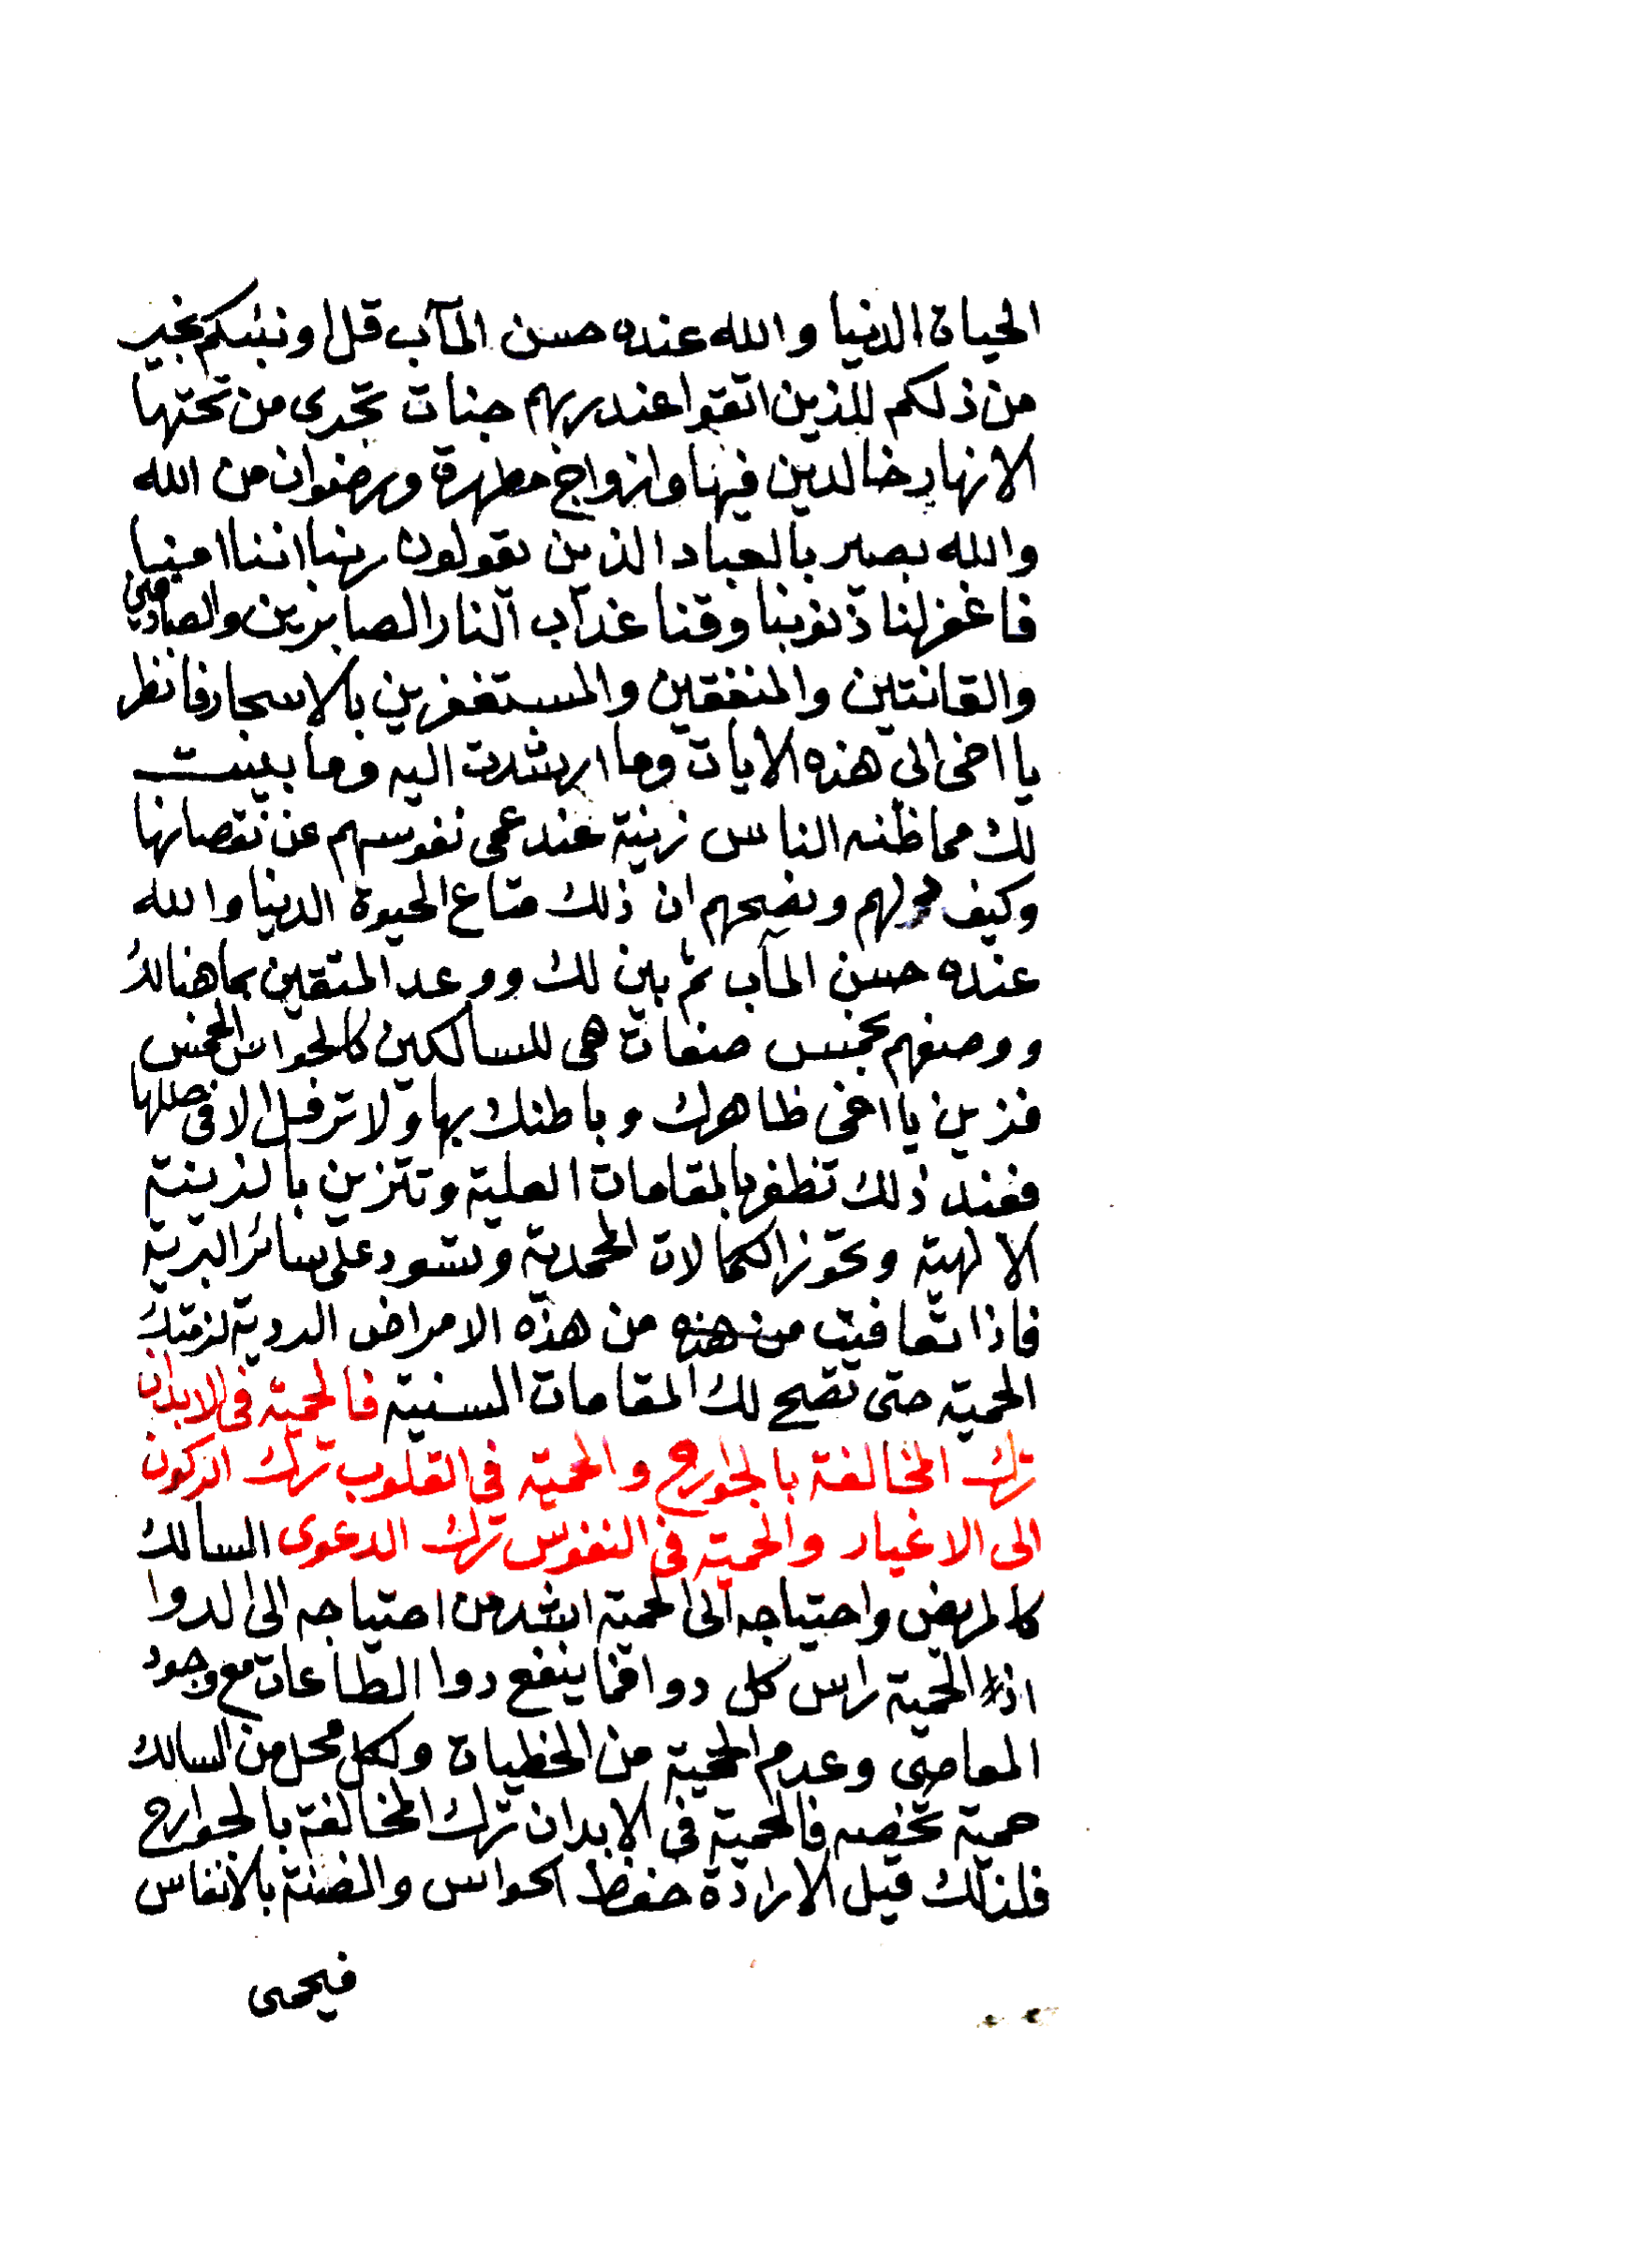 الحياة الدنيا والله عنده حسن المآب قل اونبئكم بخير
من ذلكم للذين اتقوا عند ربهم جنات تجرى من تحتها
الانهار خالدين فيها وازواج مطهرة ورضوان من الله
والله بصير بالعباد الذين يقولون ربنا اننا امنا
فاغفر لنا ذنوبنا وقنا عذاب النار الصابرين والصادقين
والقانتين والمنفقين والمستغفرين بالاسحار فانظر
يا اخى الى هذه الايات وما ارشدت اليه وما بينت
لك مما ظنه الناس زينة عند عمى نفوسهم عن نقصانها
وكيف لهم ونصحهم ان ذلك متاع الحيوة الدنيا والله
عنده حسن المآب ثم بين لك ووعد المتقين بما هنالك
ووصفهم بخمس صفات هى للسالكين كالحواس الخمس
فزين يا اخى ظاهرك وباطنك بها ولا ترفل الا فى حللها
فعند ذلك تظفر بالمقامات العلية وتتزين بالزينة
الالهية وتحوز الكمالات المحمدية وتسود على سائر البرية
فاذا تعافيت من هذه من هذه الامراض الردية لزمتك
الحمية حتى تصح لك المقامات السنية فالحمية فى الابدان
ترك المخالفة بالجوارح والحمية فى القلوب ترك الركون
الى الاغيار والحمية فى النفوس ترك الدعوى السالك
كالمريض واحتياجه الى الحمية اشد من احتياجه الى الدوا
اذ الحمية راس كل دوا فما ينفع دوا الطاعات مع وجود
المعاصى وعدم الحمية من الخطيات ولكل محل من السالك
حمية تخصه فالحمية فى الابدان ترك المخالفة بالجوارح
فلذلك قيل الارادة حفظ الحواس والضنة بالانفاس
فيحمى